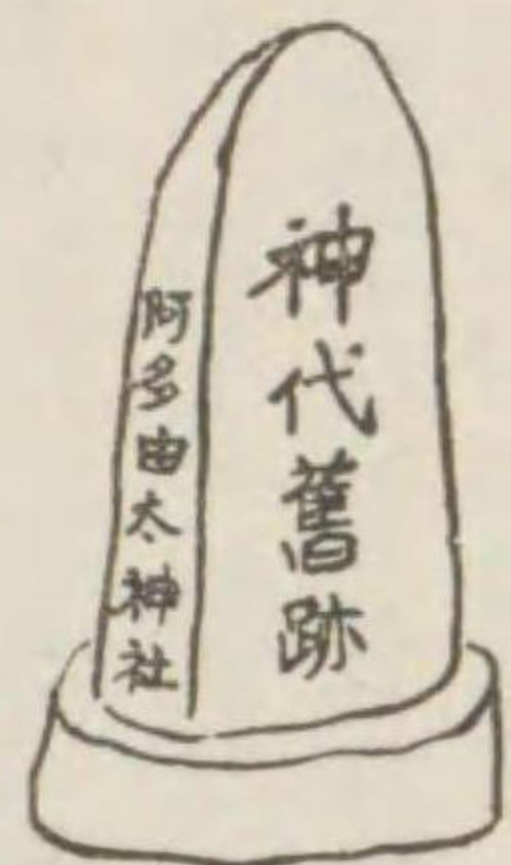 神代舊跡
阿多由太神社